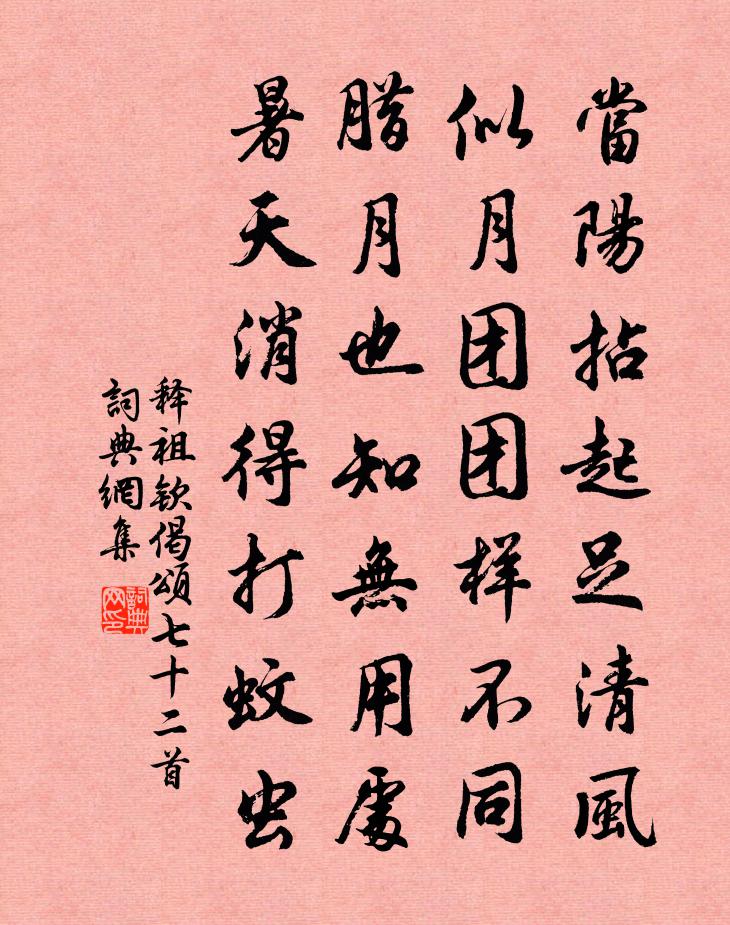 當陽拈起足清風
似月团团样不同
腊月也知無用處
暑天消得打蚊虫
释祖钦偈頌七十二首
詞典網集
詞典网印